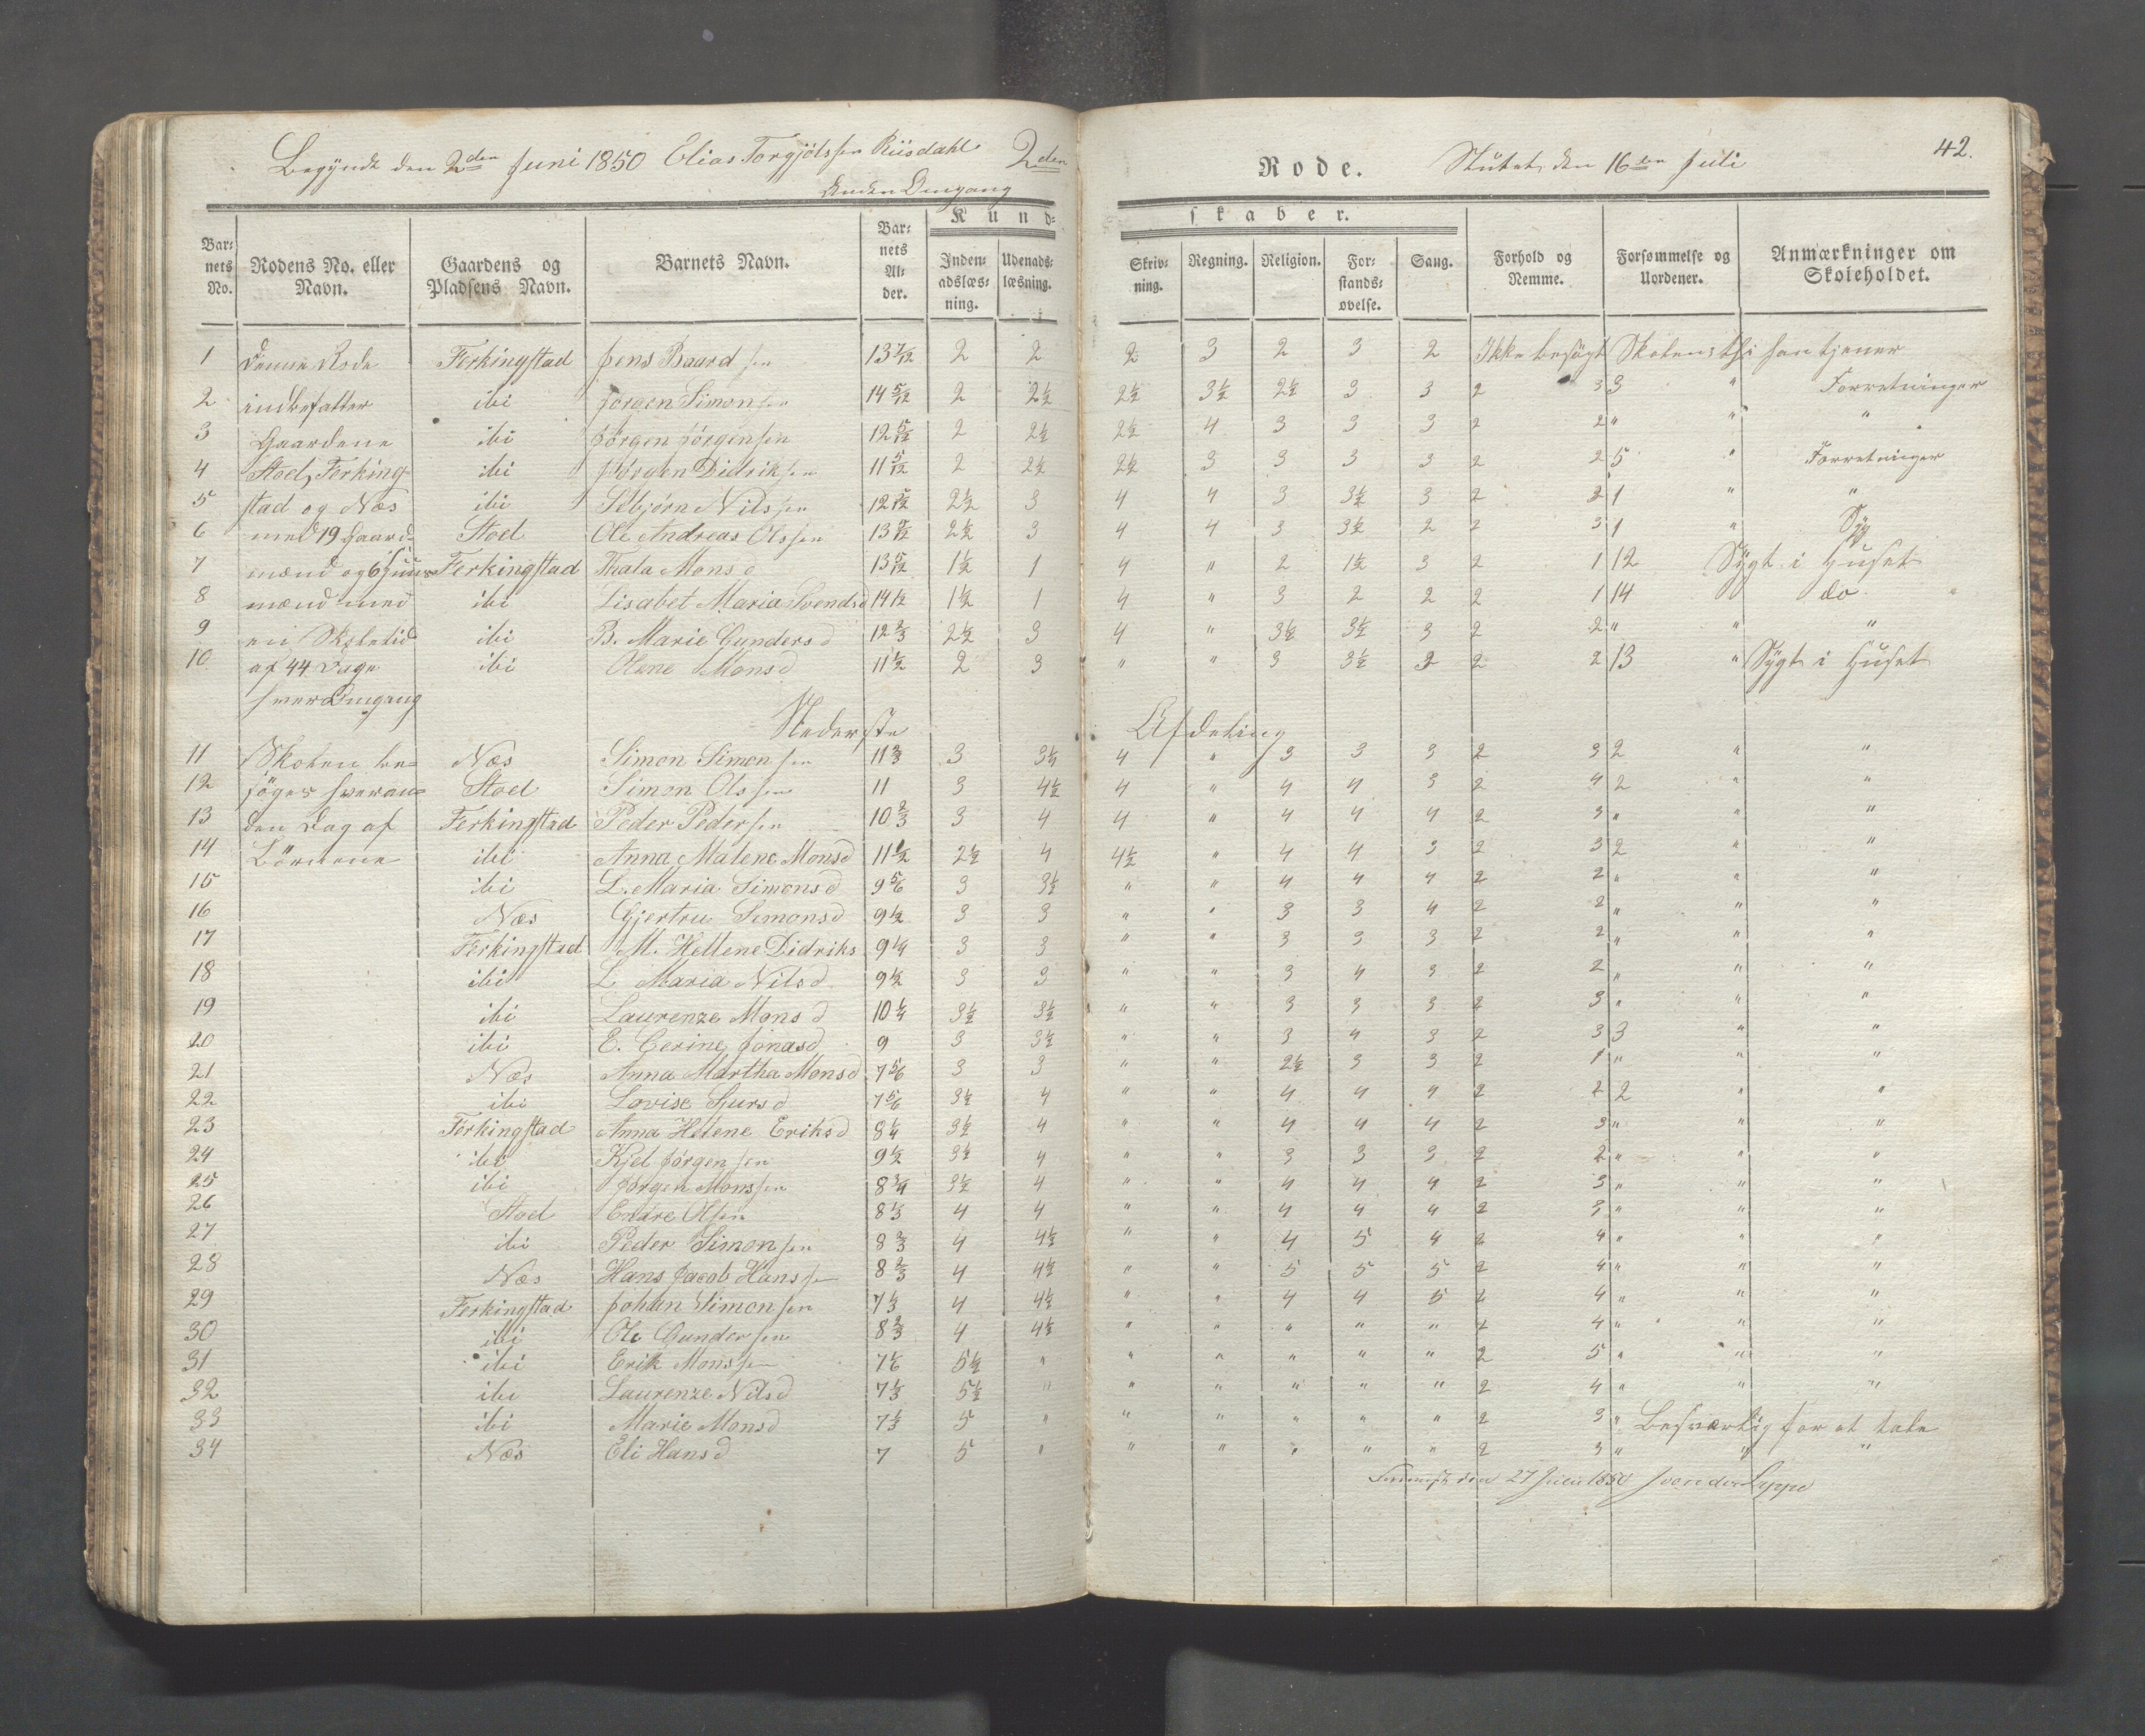 Begyndt den 2den Juni 1850 Elias Torgjölssen Riisdahl 2den
Anden Omgang
Rode. Sluttet den 16de Juli 42.
Kund= skaber.
Bar= nets No. Rodens No. eller Navn. Gaardens og Pladsens Navn. Barnets Navn. Bar= nets Al= der. Inden= adslæs= ning. Udenads= læsning. Skriv= ning. Regning. Religion. For= stands= øvelse. Sang. Forhold og Nemme. Forsømmelse og Uordener. Anmærkninger om Skoleholdet.
1 Denne Rode Ferkingstad Jens Baardsen 13 7/12 2 2 2 3 2 3 2 Ikke besøgt Skolen thi han tjener
2 indbefatter ibi Jørgen Simonsen 14 5/12 2 2½ 2½ 3½ 2½ 3 3 2 3 3 " Forretninger
3 Gaardene ibi Jørgen Jørgensen 12 5/12 2 2½ 2½ 4 3 3 3 2 2 " " "
4 Stoel, Ferking= ibi Jørgen Didriksen 11 5/12 2 2½ 2½ 3 3 3 3 2 2 5 " Forretninger
5 stad og Næs ibi Sebjørn Nilssen 12 5/12 2½ 3 4 4 3 3½ 3 2 2 1 " "
6 med 19 Gaard= Stoel Ole Andreas Olssen 13 5/12 2½ 3 4 4 3 3½ 2 2 3 1 " Syg
7 mænd og 6 Huus= Ferkingstad Thala Monsd 13 5/12 1½ 1 4 " 2 1½ 3 2 1 12 Sygt i Huset
8 mænd med ibi Lisabet Maria Svendsd 14 1/2 1½ 1 4 " 3 2 2 2 1 14 do "
9 en Skoletid ibi B. Marie Gundersd 12 2/3 2½ 3 4 " 3½ 3½ 3 2 2 " " "
10 af 44 Dage ibi Olene Monsd 11½ 2 3 " " 3 3½ 3 2 2 13 " Sygt i Huset
hver Omgang
Nederste Afdeling
11 Skolen be= Næs Simon Simonsen 11 2/3 3 3½ 4 " 3 3 3 2 3 2 " "
12 søges hveran= Stoel Simon Olssen 11 3 4½ 4 " 4 4 3 2 4 2 " "
13 den Dag af Ferkingstad Peder Pedersen 10 2/3 3 4 4 " 4 4 4 2 3 " " "
14 Börnene ibi Anna Malene Monsd 11½ 2½ 4 4½ " 4 4 3 2 3 2 " "
15 ibi L. Maria Simonsd 9 5/6 3 3½ " " 4 4 4 2 2 " " "
16 Næs Gjertru Simonsd 9½ 3 3 " " 3 3 4 2 2 " " "
17 Ferkingstad M. Hellene Didriks 9¼ 3 3 " " 3 3 3 2 2 " " "
18 ibi L Maria Nilsd 9½ 3 3 " " 3 4 3 2 2 " " "
19 ibi Laurenze Monsd 10¼ 3½ 3½ " " 3 3 3 2 3 " " "
20 ibi E. Cerine Jonasd 9 3 3½ " " 3 4 3 2 3 3 " "
21 Næs Anna Martha Monsd 7 5/6 3 3 " " 2½ 3 3 2 1 " " "
22 ibi Lovise Sjursd 7 5/6 3½ 4 " " 4 4 4 2 2 2 " "
23 Ferkingstad Anna Helene Eriksd 8¼ 3½ 4 " " 4 4 4 2 3 " " "
24 ibi Kjel Jørgensen 9½ 3½ 4 " " 3 3 3 2 2 " " "
25 ibi Jørgen Monssen 8¾ 3½ 4 " " 4 4 4 2 3 " " "
26 Stoel Endre Olsen 8 1/3 4 4 " " 4 4 4 2 3 " " "
27 ibi Peder Simonsen 8 2/3 4 4½ " " 4 5 4 2 4 " " "
28 Næs Hans Jacob Hanssen 8 2/3 4 4½ " " 5 5 5 2 4 " " "
29 Ferkingstad Johan Simonsen 7 1/3 4 4½ " " 4 4 5 2 4 " " "
30 ibi Ole Gundersen 8 2/3 4 4½ " " " " " 2 4 " " "
31 ibi Erik Monssen 7 1/6 5½ " " " " " " 2 5 " " "
32 ibi Laurenze Nilsd 7 1/3 5½ " " " " " " 2 4 " " "
33 ibi Marie Monsd 7 1/3 5 " " " " " " 2 3 " Besværlig for at tale
34 Næs Eli Hansd 7 5 " " " " " " 2 3 " " "
den 27 Juli 1850 J von der Lippe